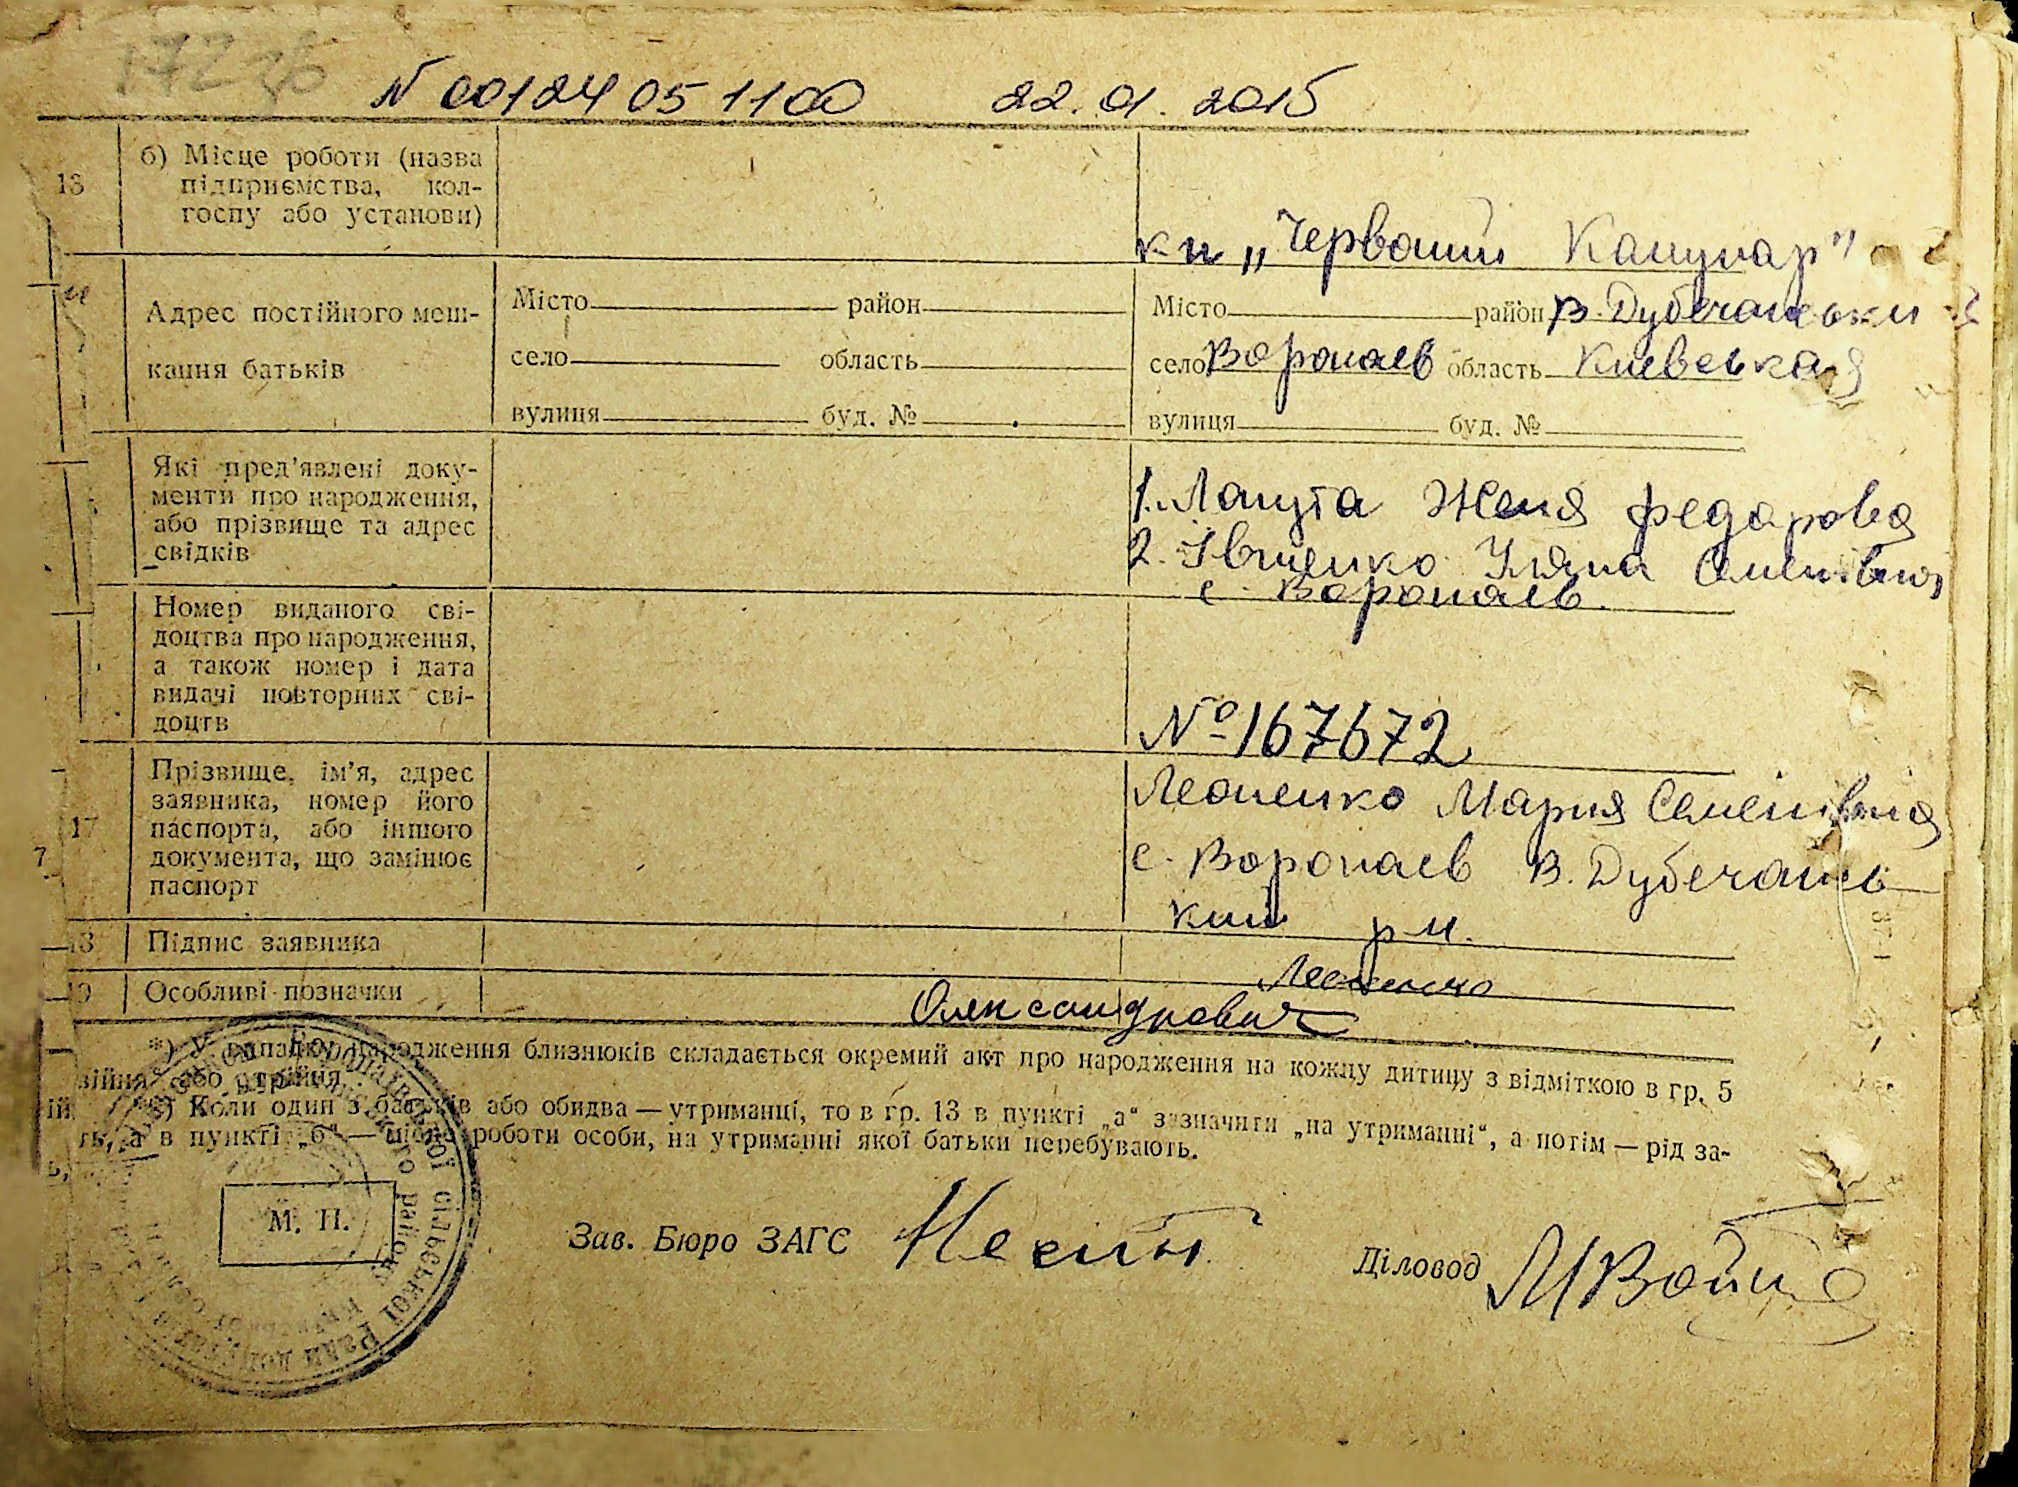 172зв
N 00124051100 22.01.2015
13 б) Місце роботи (назва
підприємства, кол-
госпу або установи)
кп „Червоний Кашунар"
Адрес постійного меш-
кання батьків
Місто район Місто район В. Дубечанськи
село область село Воропаєв область Киевськая
вулиця буд. № вулиця буд. №
Які пред'явлені доку-
менти про народження,
або прізвище та адрес
свідків
1. Лапута Женя Федарова
2. Івченко Уляна Семенівна
с. Воропаєв.
Номер виданого сві-
доцтва про народження,
а також номер і дата
видачі повторних сві-
доцтв
№ 167672
17 Прізвище, ім'я, адрес
заявника, номер його
паспорта, або іншого
документа, що замінює
паспорт
Леоненко Мария Семенівна
с. Воропаєв В. Дубечансь-
кий рн.
18 Підпис заявника
Леоненко
19 Особливі позначки
Олександрович
*) У випадку народження близнюків складається окремий акт про народження на кожну дитину з відміткою в гр. 5
війня або трійня.
*) Коли один з батьків або обидва — утриманці, то в гр. 13 в пункті „а" зазначити „на утриманні", а потім — рід за-
ть, а в пункті „б" — місце роботи особи, на утриманні якої батьки перебувають.
М. П.
Зав. Бюро ЗАГС
Діловод МВойт